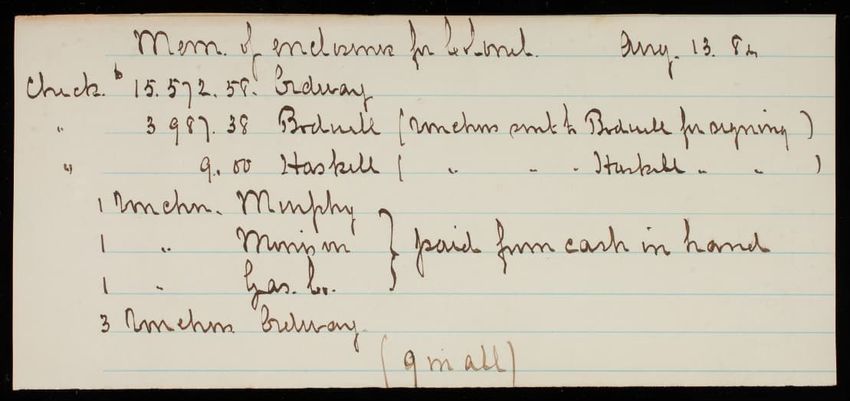 Mem. of enclosures for Colonel. Aug. 13. 82
Check. $ 15.572.58. Ordway
" 3987.38 Bodwell (Vouchers sent to Bodwell for signing)
" 9.00 Haskell ( " " " Haskell " " )
1 Voucher. Murphy
1 " Morrison } paid from cash in hand
1 " Gas. Co.
3 Vouchers Ordway.
(9 in all)